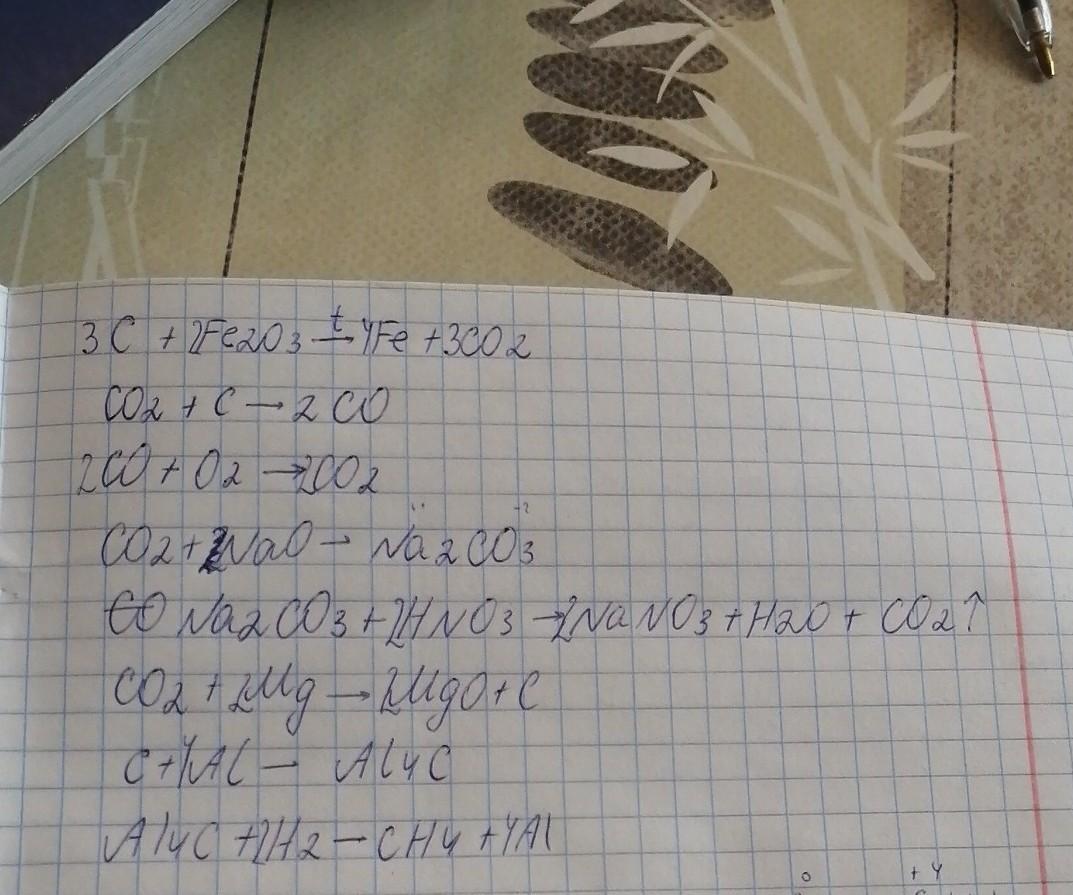 3C + 2Fe2O3 t→ 4Fe + 3CO2
CO2 + C → 2CO
2CO + O2 → 2CO2
CO2 + 2NaO → Na2CO3
CO Na2CO3 + 2HNO3 → 2NaNO3 + H2O + CO2↑
CO2 + 2Mg → 2MgO + C
C + 4Al — Al4C
Al4C + 2H2 — CH4 + 4Al
0 +4